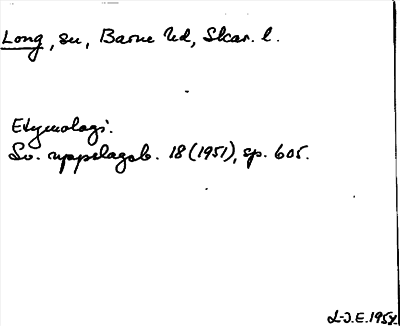 Long, su, Barne hd, Skar. l.
Etymologi.
Sv. uppslagsb. 18 (1951), sp. 605.
L-J.E. 1954.